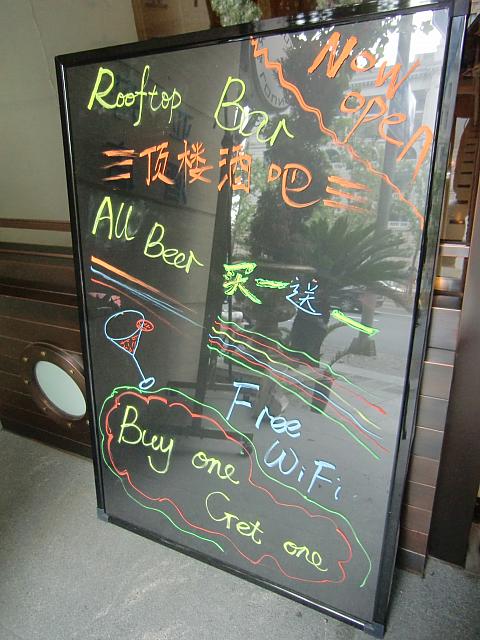 Now open
Rooftop Bar
顶楼酒吧
All Beer
买一送一
Free WiFi
Buy one
Get one